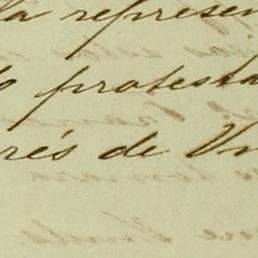 la represen
o protesta
rés de Vn